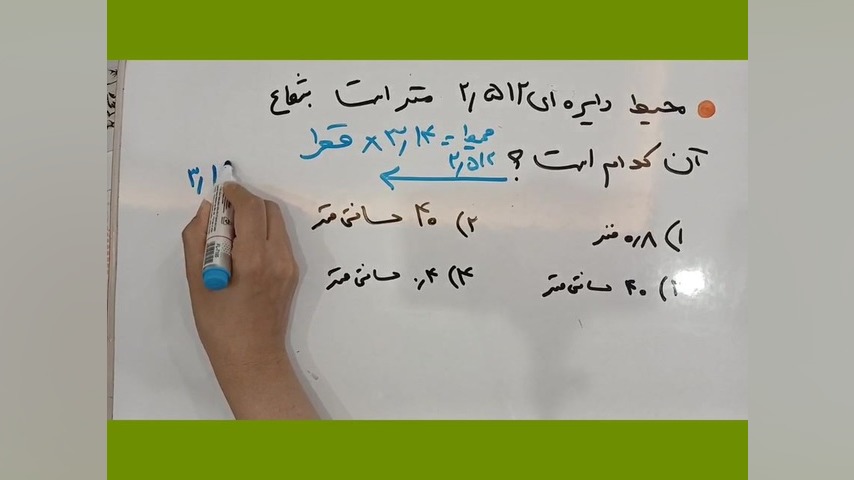 محیط دایره ای ۲٫۵۱۲ متر است شعاع
آن کدام است؟
محیط = ۳٫۱۴ × قطر
۲٫۵۱۲
۳٫۱
۱) ۰٫۸ متر
۲) ۴۰ سانتی متر
۴۰ سانتی متر
۴) ۰٫۴ سانتی متر